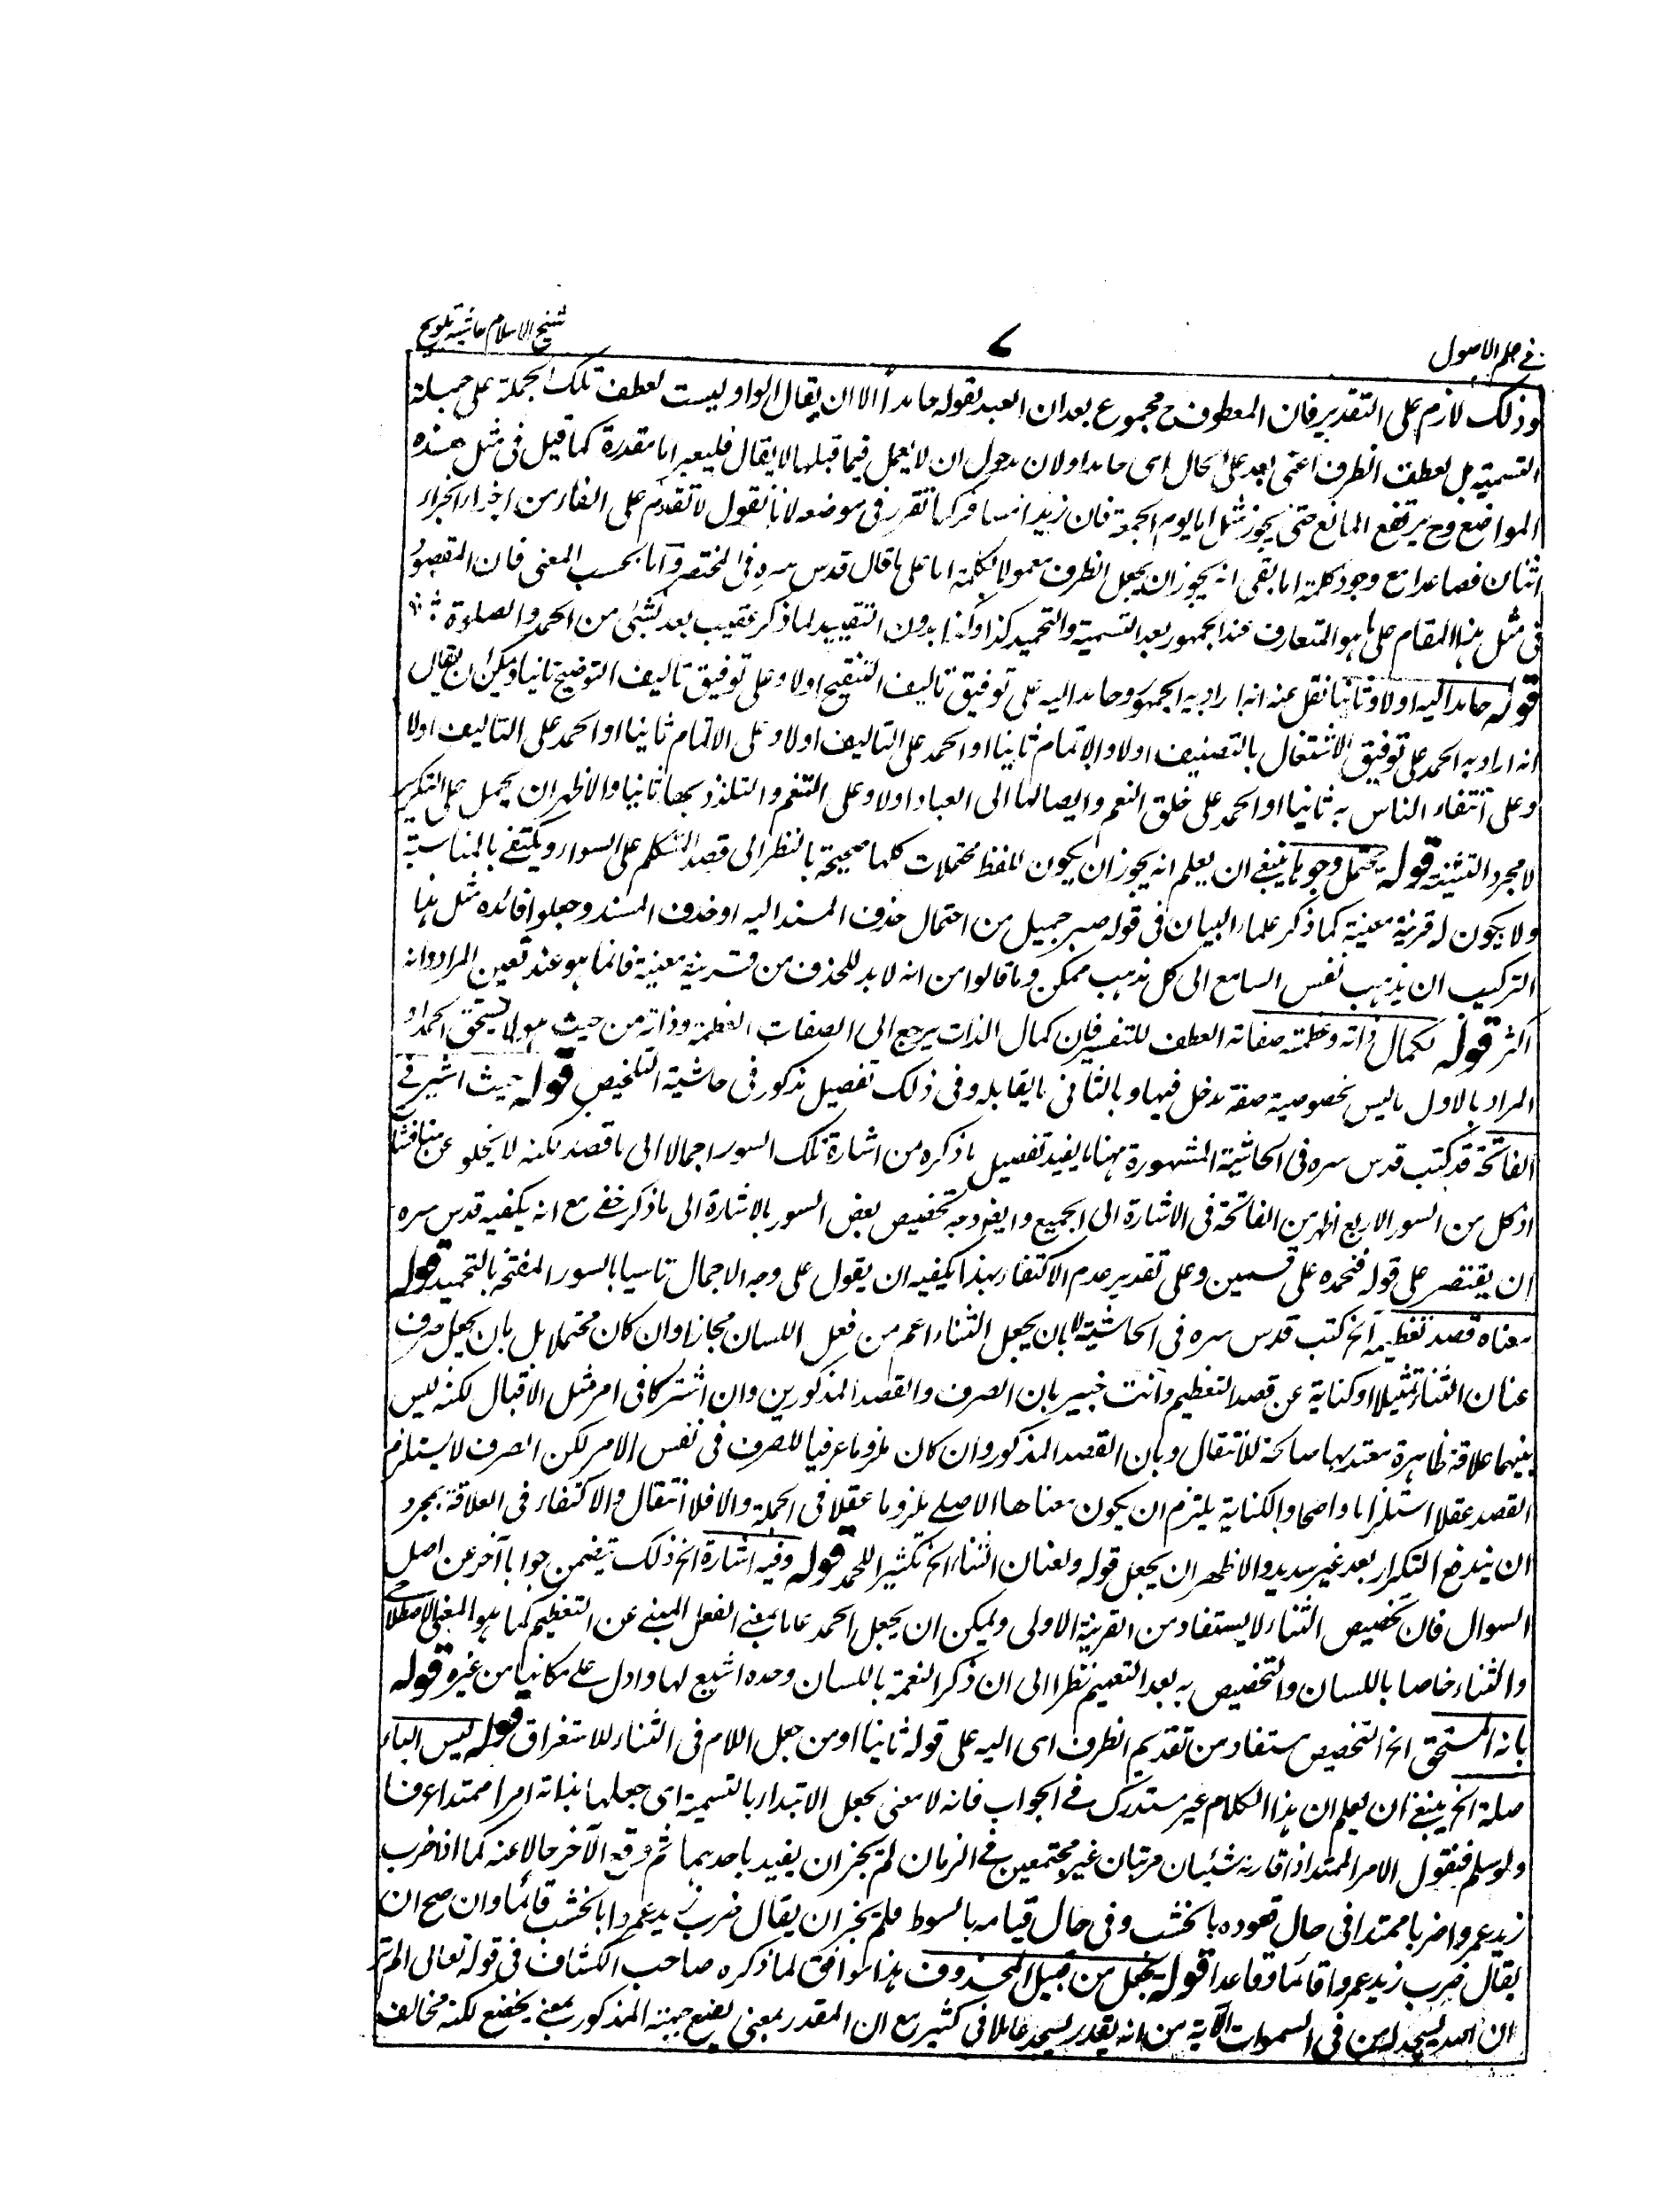 في علم الاصول
٧
شيخ الاسلام حاشيه تلويح
وذلك لازم على التقدير فان المعطوف ح مجموع بعد ان العبد بقوله حامدا الا ان يقال الواو ليست لعطف تلك الجملة على جملة
التسمية بل لعطف الظرف اعنى بعد على الحال اى حامدا ولان مدخول ان لا يعمل فيما قبلها لا يقال فليعبر اما مقدرة كما قيل فى مثل هذه
المواضع وح يرتفع المانع حتى يجوز مثل اما يوم الجمعة فان زيدا مسافر كما تقرر فى موضعه لانا نقول لا تقدم على الفاء من اجزاء الجزاء
اثنان فصاعدا مع وجود كلمة اما بقى انه يجوز ان يجعل الظرف معمولا لكلمة اما على ما قال قدس سره فى المختصر واما بحسب المعنى فان المقصود
فى مثل هذا المقام على ما هو المتعارف عند الجمهور بعد التسمية والتحميد كذا وكذا بدون التقييد لما ذكر عقيب بعد بشئ من الحمد والصلوة
قوله حامدا اليه اولا وثانيا نقل عنه انه اراد به الجمهور وحامدا اليه على توفيق تاليف التنقيح اولا وعلى توفيق تاليف التوضيح ثانيا ويمكن ان يقال
انه اراد به الحمد على توفيق الاشتغال بالتصنيف اولا والاتمام ثانيا او الحمد على التاليف اولا وعلى الاتمام ثانيا او الحمد على التاليف اولا
وعلى انتفاء الناس به ثانيا او الحمد على خلق النعم وايصالها الى العباد اولا وعلى التنعم والتلذذ بها ثانيا والاظهر ان يحمل على التكرير
لا مجرد التثنية قوله يحتمل وجوها ينبغى ان يعلم انه يجوز ان يكون للفظ محتملات كلها صحيحة بالنظر الى قصد المتكلم على السواء ويكتفى بالمناسبة
ولا يكون له قرينة معينة كما ذكر علماء البيان فى قوله صبر جميل من احتمال حذف المسند اليه او حذف المسند وجعلوا فائده مثل هذا
التركيب ان يذهب نفس السامع الى كل مذهب ممكن وما قالوا من انه لا بد للحذف من قرينة معينة فانما هو عند تعين المراد وانه
اكثر قوله لكمال ذاته وعظمة صفاته العطف للتفسير فان كمال الذات يرجع الى الصفات العظمة وذاته من حيث هو لا تستحق الحمد او
المراد بالاول ما ليس لخصوصية صفة مدخل فيها وبالثانى ما يقابله وفى ذلك تفصيل مذكور فى حاشية التلخيص قوله حيث اشير فى
الفاتحة قد كتب قدس سره فى الحاشية المشهورة ههنا ما يفيد تفصيل ما ذكره من اشارة تلك السور اجمالا الى ما قصد لكنه لا يخلو عن مناقشة
اذ كل من السور الاربع اظهر من الفاتحة فى الاشارة الى الجميع وايضا وجه تخصيص بعض السور بالاشارة الى ما ذكر خفى مع انه يكفيه قدس سره
ان يقتصر على قوله فنحمده على قسمين وعلى تقدير عدم الاكتفاء بهذا يكفيه ان يقول على وجه الاجمال تاسيا بالسور المفتتحة بالتحميد قوله
معناه قصد تعظيمه الخ كتب قدس سره فى الحاشية لا بان يجعل الثناء اعم من فعل اللسان مجازا وان كان محتملا بل بان يجعل صرف
عنان الثناء تمثيلا او كناية عن قصد التعظيم وانت خبير بان الصرف والقصد المذكورين وان اشتركا فى امر مثل الاقبال لكنه ليس
بينهما علاقة ظاهرة معتد بها صالحة للانتقال وبان القصد المذكور وان كان ملزوما عرفيا للصرف فى نفس الامر لكن الصرف لا يستلزم
القصد عقلا استلزاما واضحا والكناية يلتزم ان يكون معناها الاصلى ملزوما عقلا فى الجملة والا فلا انتقال والاكتفاء فى العلاقة بمجرد
ان يندفع التكرار بعد غير سديد والاظهر ان يجعل قوله ولعنان الثناء الخ تكثيرا للحمد قوله وفيه اشارة الخ ذلك يتضمن جوابا آخر عن اصل
السوال فان تخصيص الثناء لا يستفاد من القرينة الاولى ويمكن ان يجعل الحمد عاما بمعنى الفعل المبنى عن التعظيم كما هو المعنى الاصطلاحى
والثناء خاصا باللسان والتخصيص به بعد التعميم نظرا الى ان ذكر النعمة باللسان وحده اشيع لها وادل على مكانها من غيره قوله
بانه المستحق الخ التخصيص مستفاد من تقديم الظرف اى اليه على قوله ثانيا او من جعل اللام فى الثناء للاستغراق قوله ليس الباء
صلة الخ ينبغى ان يعلم ان هذا الكلام غير مستدرك فى الجواب فانه لا معنى لجعل الابتداء بالتسمية اى جعلها بذاته امرا ممتدا عرفا
ولو سلم فنقول الامر الممتد اذا قارنه شيئان مرتبان غير مجتمعين فى الزمان لم يجز ان يقيد باحدهما ثم وقع الآخر حالا عنه كما اذا ضرب
زيد عمروا ضربا ممتدا فى حال قعوده بالخشب وفى حال قيامه بالسوط فلم يجز ان يقال ضرب زيد عمروا بالخشب قائما وان صح ان
يقال ضرب زيد عمروا قائما وقاعدا قوله يجعل من قبيل المحذوف هذا موافق لما ذكره صاحب الكشاف فى قوله تعالى الم تر
ان الله يسجد له من فى السموات الآية من انه يقدر يسجد عاملا فى كثير مع ان المقدر بمعنى يضع جبهته المذكور بمعنى يخضع لكنه مخالف